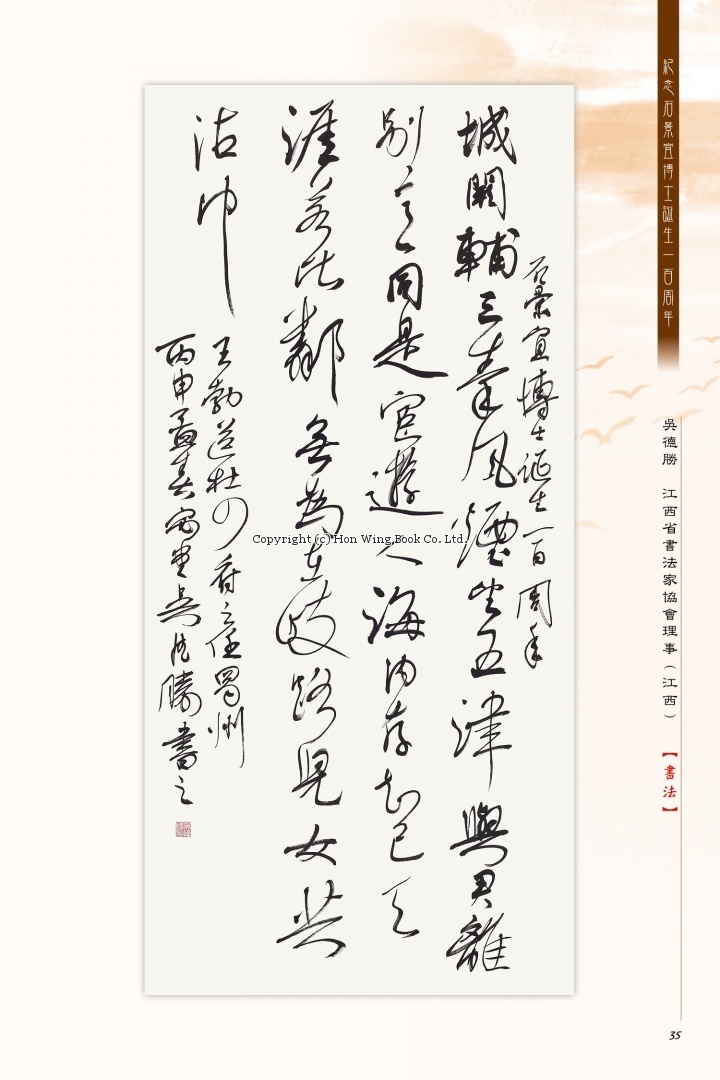 紀念石景宜博士誕生一百周年
吳德勝 江西省書法家協會理事（江西）
【書法】
石景宜博士誕生一百周年
城闕輔三秦風煙望五津與君離
別意同是宦遊人海內存知己天
涯若比鄰無為在歧路兒女共
沾巾
王勃送杜少府之任蜀州
丙申孟春吳德勝書之
Copyright (c) Hon Wing Book Co. Ltd.
35